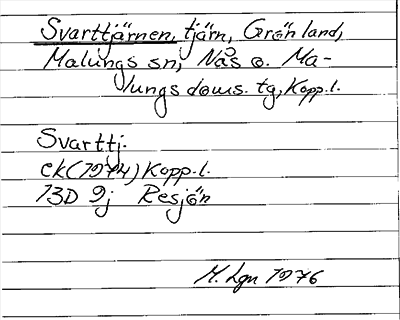 Svarttjärnen, tjärn, Grönland,
Malungs sn, Nås o. Ma-
lungs doms. tg, Kopp.l.
Svarttj.
ek (1974) Kopp.l.
13D 9j Resjön
M. Lgn 1976